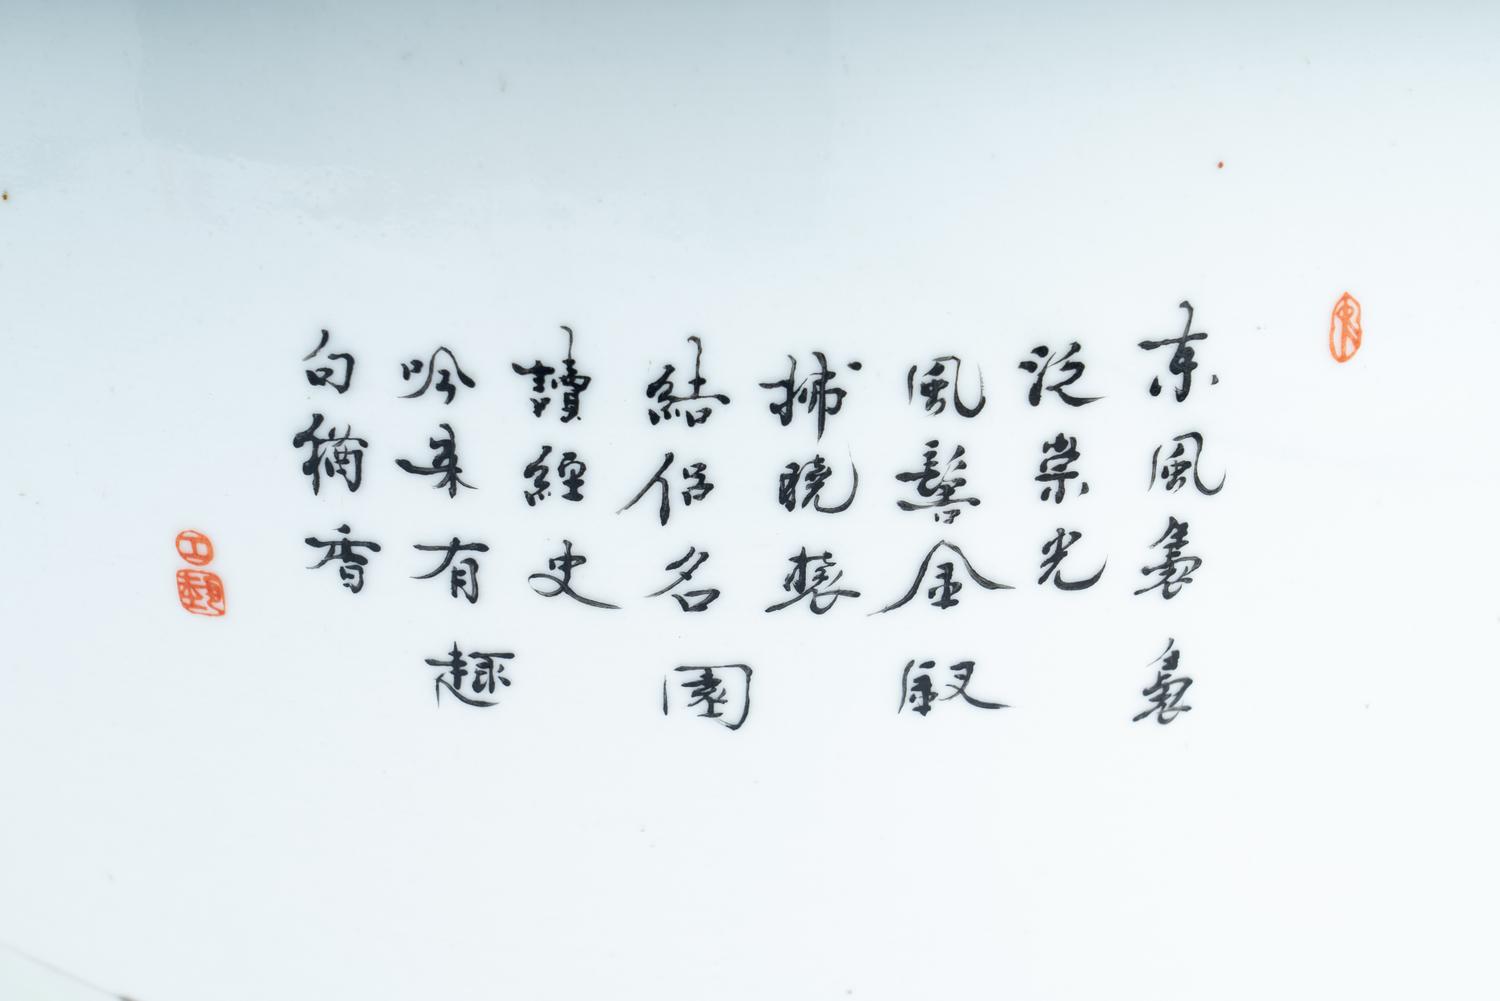 东風裊裊
泛崇光
風鬟金釵
拂晓裝
結侶名園
讀經史
吟来有趣
句猶香